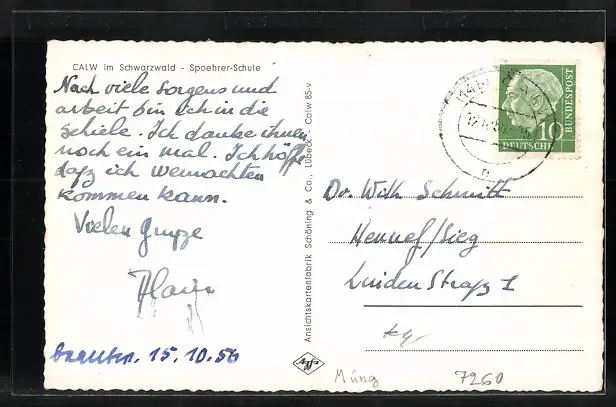 CALW im Schwarzwald - Spoehrer-Schule
Nach viele sorgens und
arbeit bin ich in die
schiele. Ich danke ihnen
noch ein mal. Ich höffe
dasz ich weinachten
kommen kann.
Vielen grusze
15.10.56
Ansichtskartenfabrik Schöning & Co., Lübeck - Calw 85-v
Agfa
10
DEUTSCHE
BUNDESPOST
Dr. Wilh. Schmitt
Hennef/Sieg
Linden Strasz 1
7260